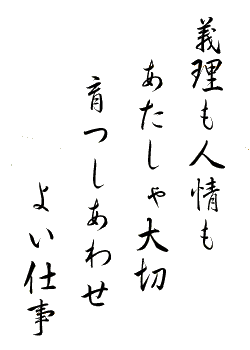 義理も人情も
あたしゃ大切
育つしあわせ
よい仕事